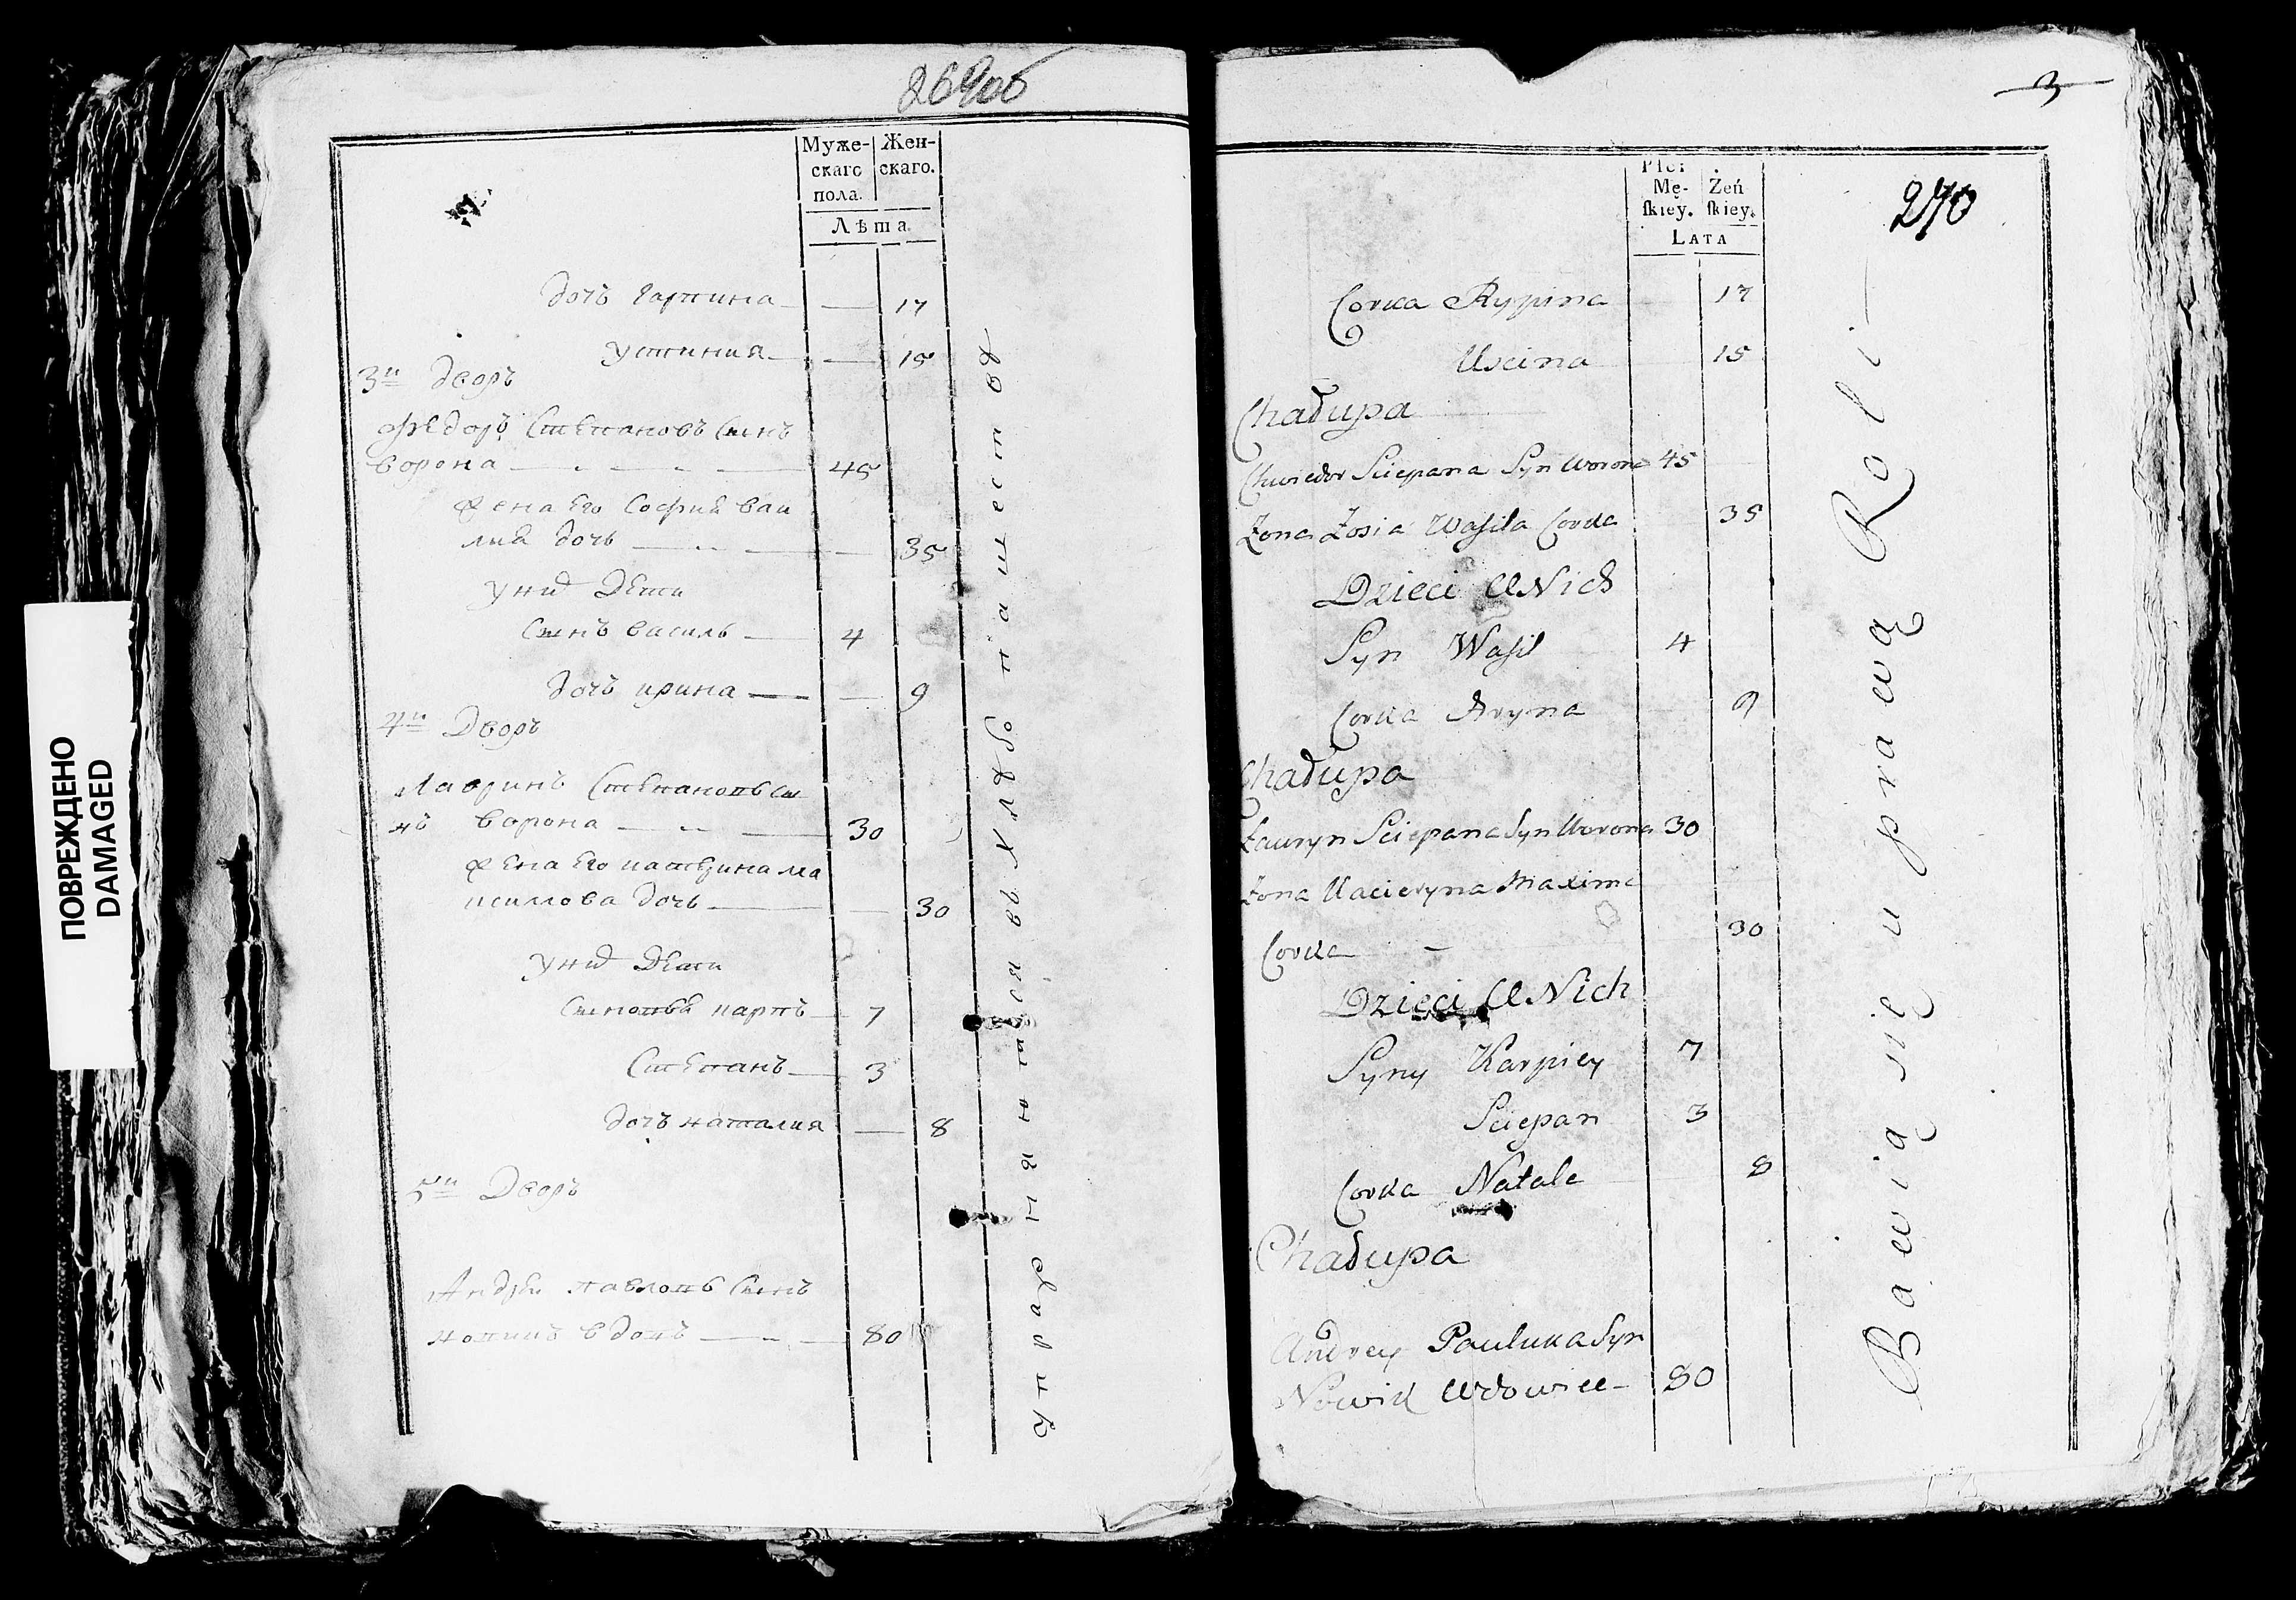 269об
Муже-
скаго
пола.
Жен-
скаго.
Лѣта.
дочъ гарпина 17
устиния 15
3й дворъ
Федоръ Степановъ сынъ
ворона 45
жена его София васи
лия дочь 35
у них дети
Сынъ василь 4
дочъ ирина 9
4й Дворъ
Лавринъ Степановъ сы
нъ ворона 30
жена его катерина ма
ксимова дочь 30
у них дети
Сыновья карпъ 7
Степанъ 3
дочъ наталия 8
5й Дворъ
Андрей павловъ сынъ
новикъ вдовъ 80
упражняются въ хлебопашестве
3
270
Płci
Mę-
skiey.
Żeń
skiey.
LATA
Corka Rypina 17
Uscina 15
Chałupa
Chwiedor Sciepana Syn Worona 45
Zona Zosia Wasila Corka 35
Dzieci U Nich
Syn Wasil 4
Corka Aryna 9
Chałupa
Lauryn Sciepana Syn Worona 30
Zona Kacieryna Maxima
Corka 30
Dzieci U Nich
Syny Karpiey 7
Sciepan 3
Corka Natale 8
Chałupa
Andrey Pauluka Syn
Nowik Wdowiec 80
Bawią się uprawą Roli
ПОВРЕЖДЕНО
DAMAGED